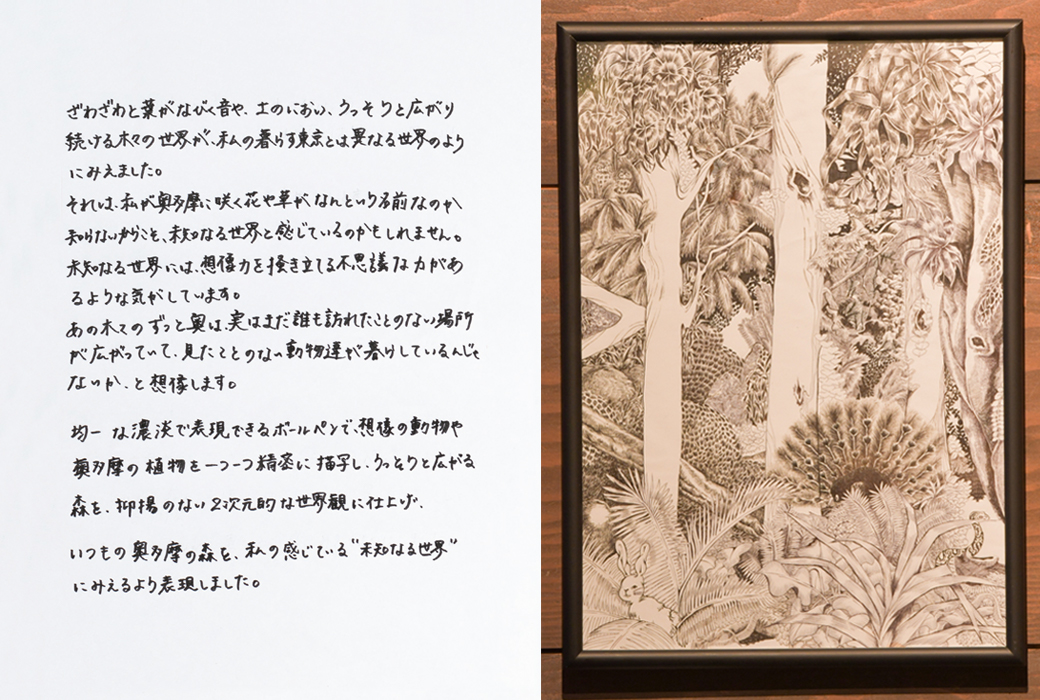 ざわざわと葉がなびく音や、土のにおい、うっそりと広がり
続ける木々の世界が、私の暮らす東京とは異なる世界のよう
にみえました。
それは、私が奥多摩に咲く花や草がなんという名前なのか
知らないからこそ、未知なる世界と感じているのかもしれません。
未知なる世界には、想像力を掻き立てる不思議な力があ
るような気がしています。
あの木々のずっと奥は、実はまだ誰も訪れたことのない場所
が広がっていて、見たことのない動物達が暮らしているんじゃ
ないか、と想像します。
均一な濃淡で表現できるボールペンで、想像の動物や
奥多摩の植物を一つ一つ精密に描写し、うっそりと広がる
森を、抑揚のない2次元的な世界観に仕上げ、
いつもの奥多摩の森を、私の感じている"未知なる世界"
にみえるよう表現しました。